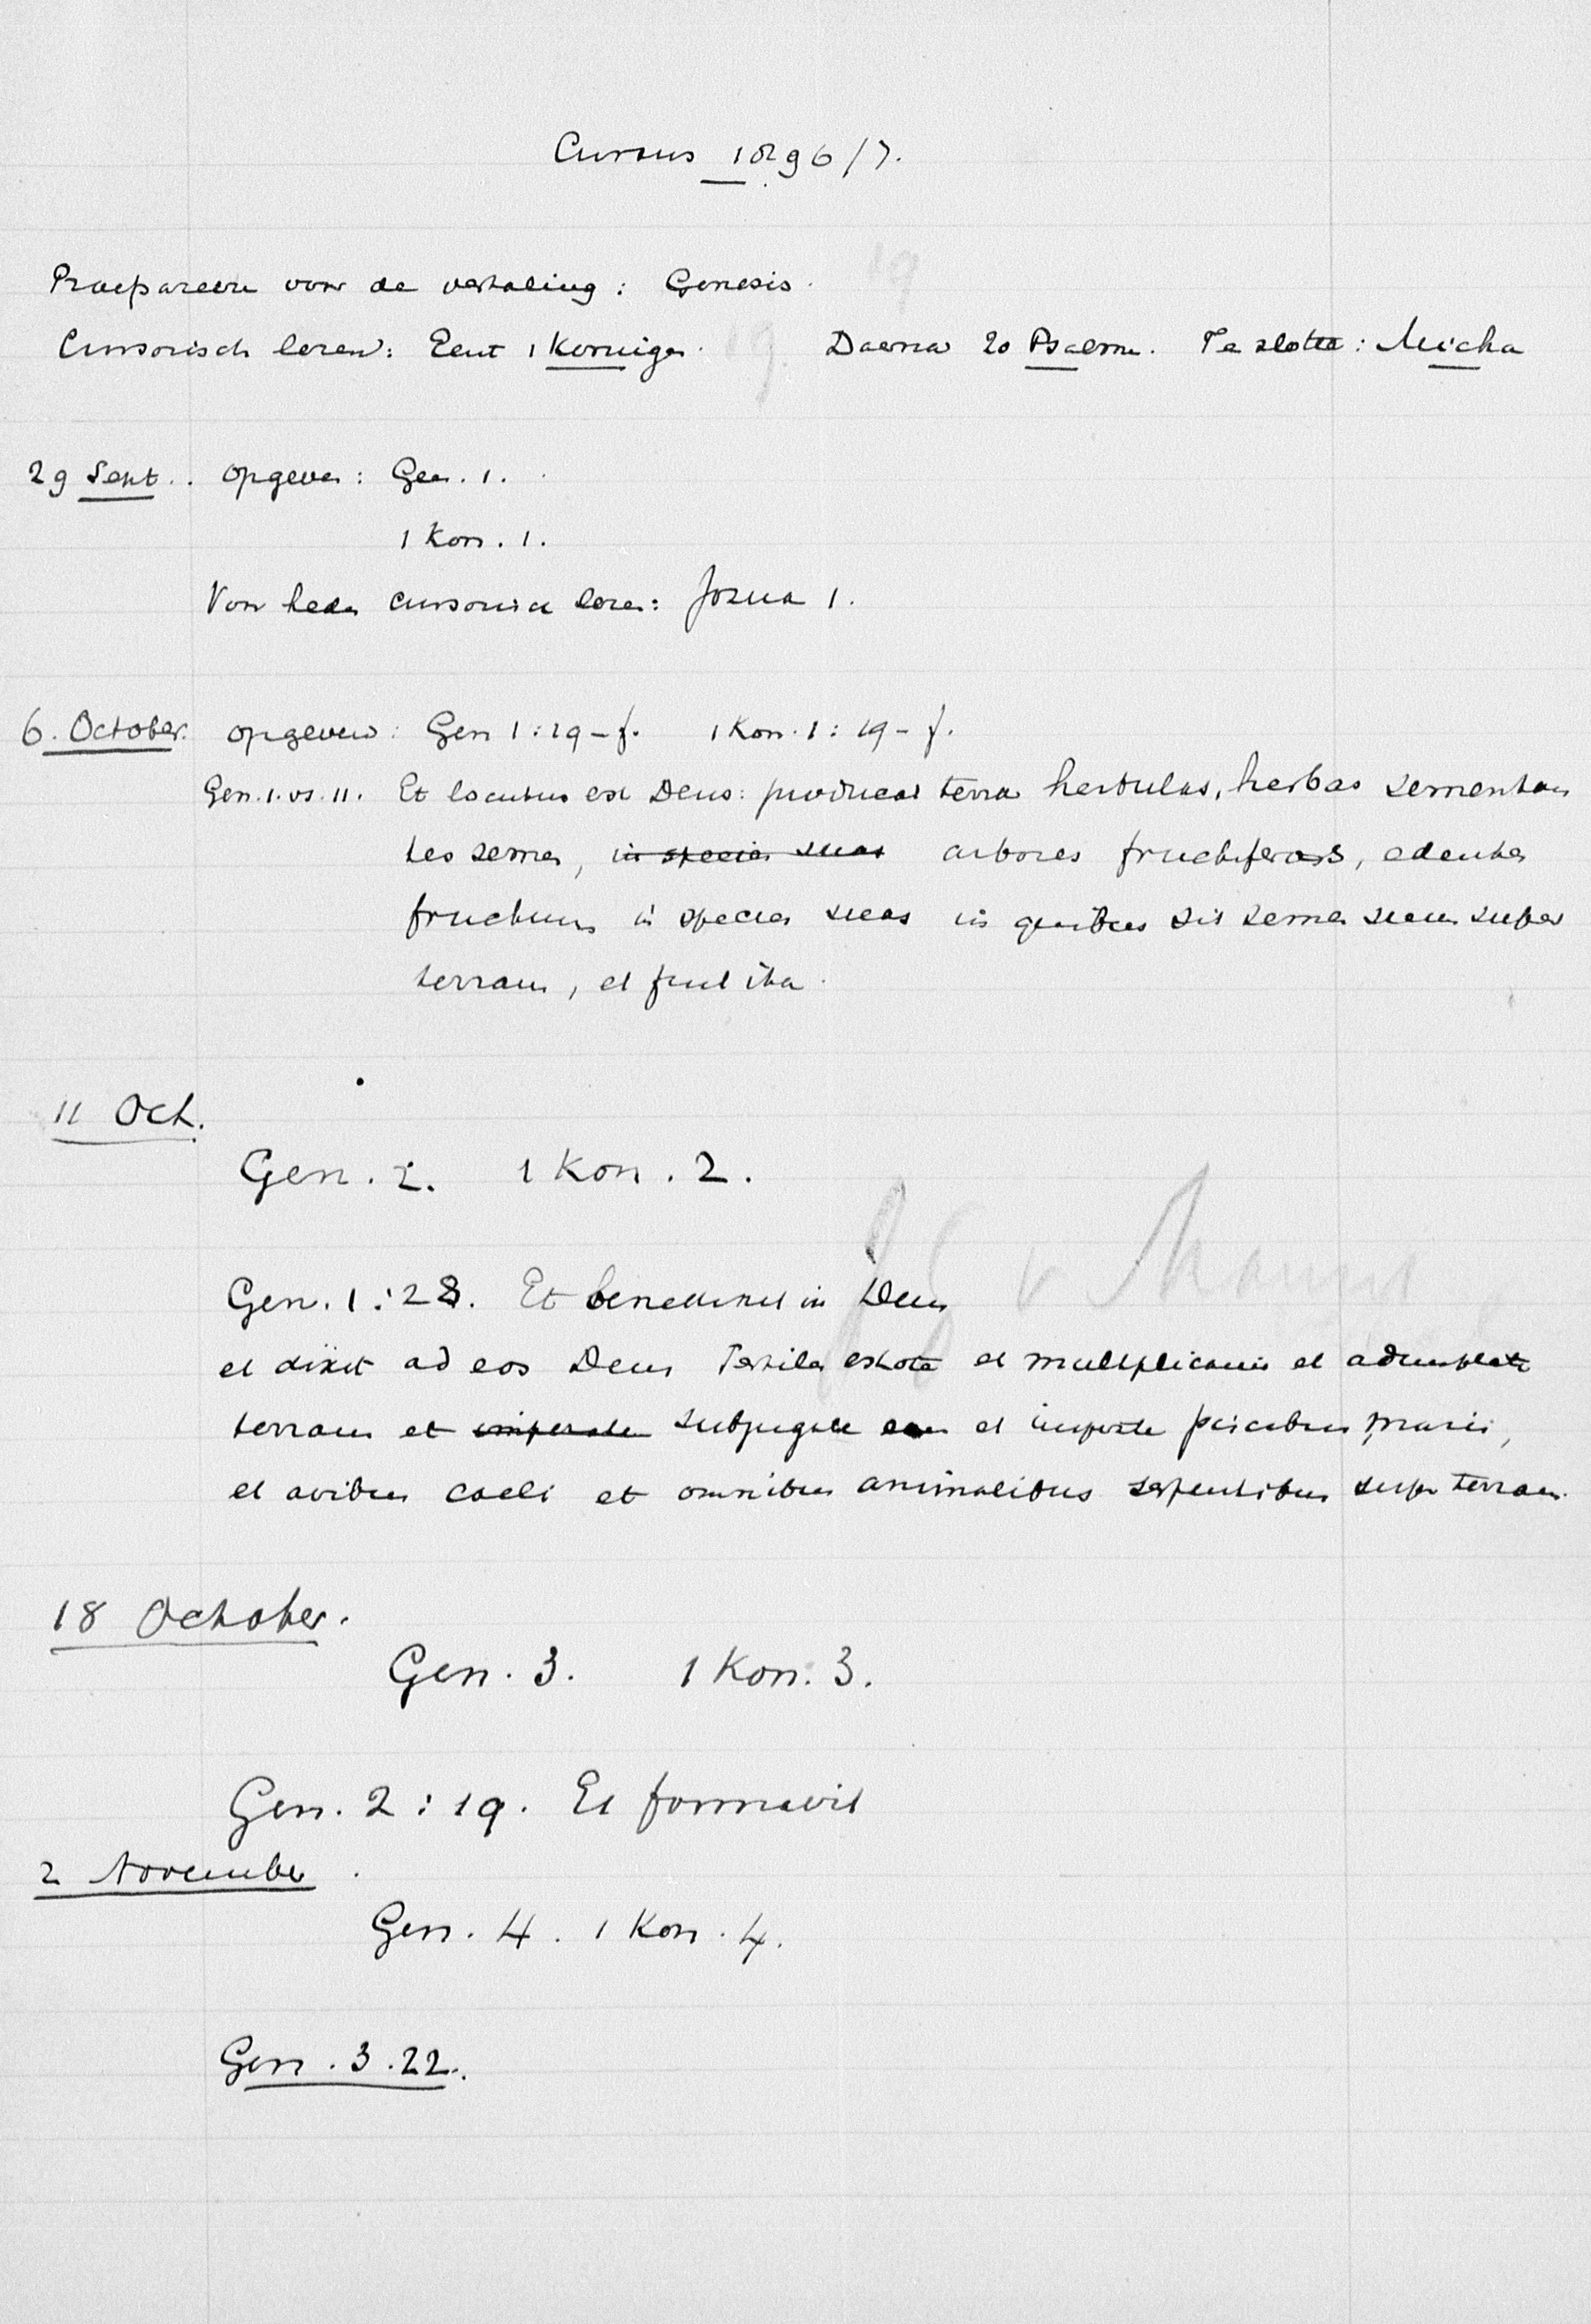 Cursus 1896/7.
Praepareeren voor de vertaling: Genesis.
Cursorisch lezen: Eerst 1 Koningen. Daarna 20 Psalmen. Ten slotte: Micha
29 Sept. opgeven: Gen. 1.
1 Kon. 1.
Voor heden cursorisch lezen: Jozua 1.
6. October. opgeven: Gen 1:19-f. 1 Kon. 1:19-f.
Gen. 1. vs. 11. Et locutus est Deus: producat terra herbulas, herbas sementan
tes semen, in species suas arbores fructiferas, edentes
fructum in species suas in quibus sit semen suum super
terram, et fuit ita.
11 Oct.
Gen. 2. 1 Kon. 2.
Gen. 1:28. Et benedixit iis Deus
et dixit ad eos Deus Fertiles estote et multiplicamini et adimplete
terram et imperate subjugate eam et imperate piscibus maris,
et avibus caeli et omnibus animalibus serpentibus super terram.
18 October.
Gen. 3. 1 Kon. 3.
Gen. 2:19. Et formavit
2 November.
Gen. 4. 1 Kon. 4.
Gen. 3.22.